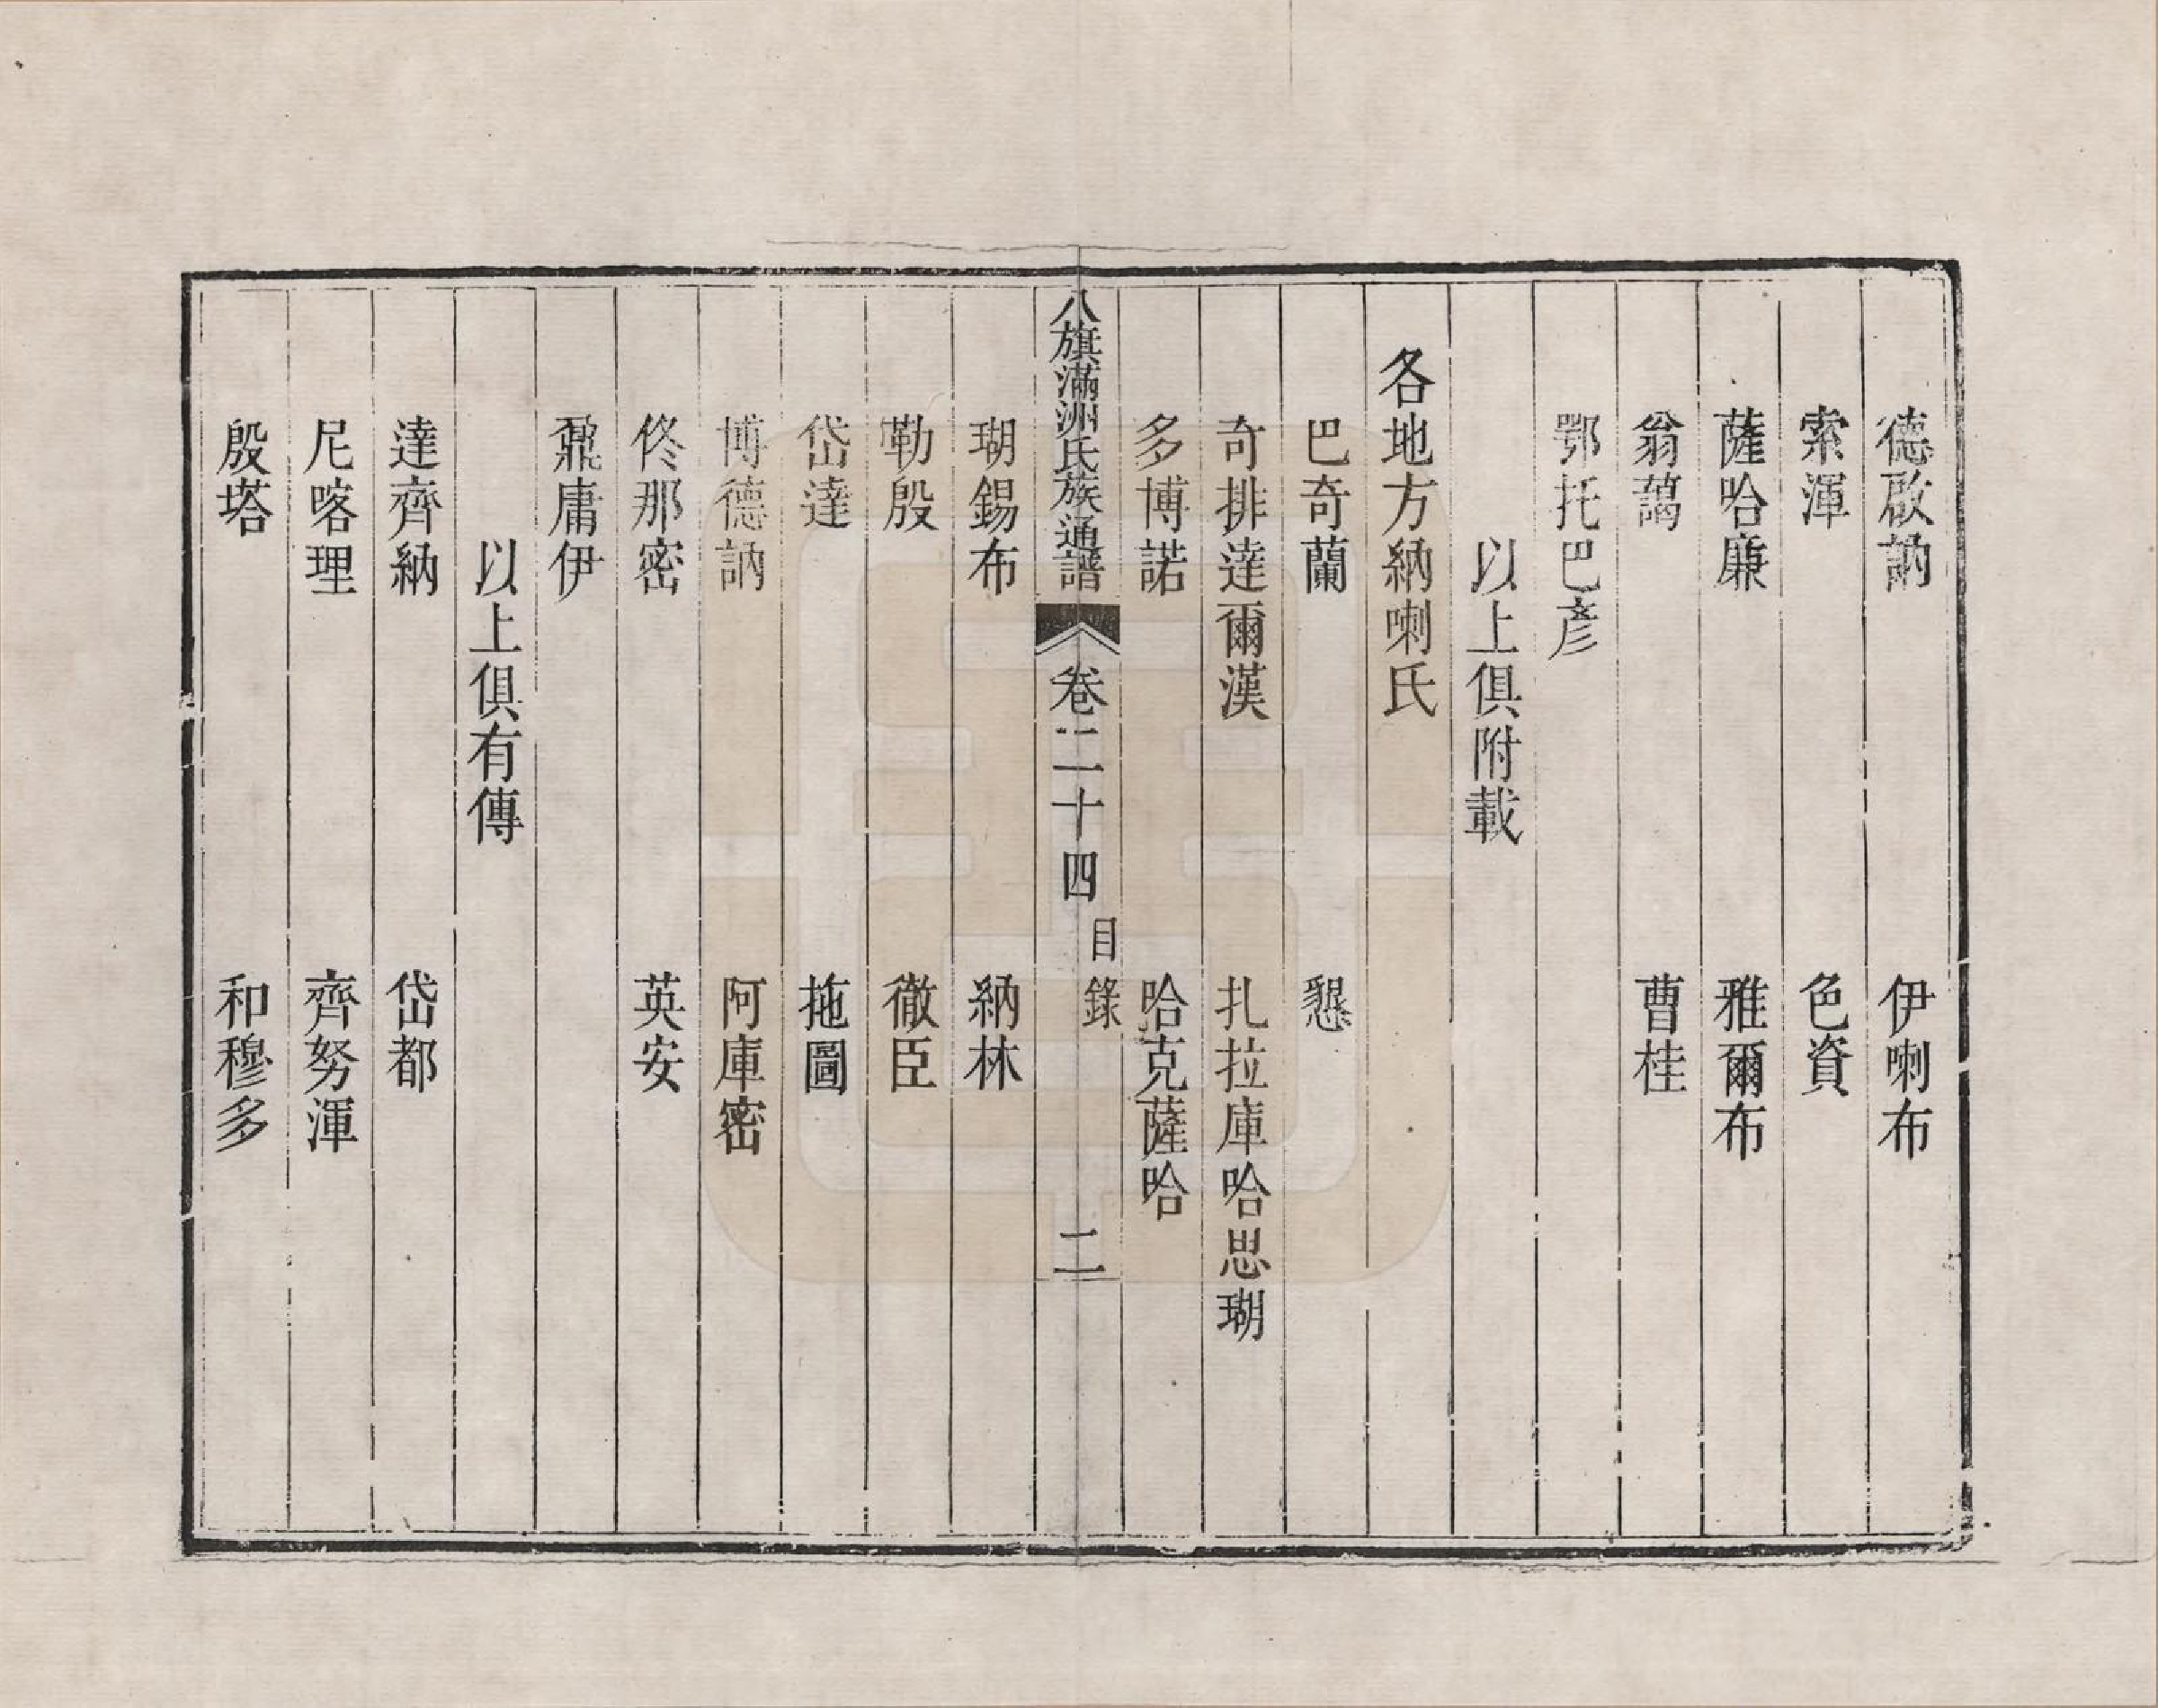 德啟訥　伊喇布
索渾　色資
薩哈廉　雅爾布
翁藹　曹桂
鄂托巴彥
以上俱附載
各地方納喇氏
巴奇蘭　懇
奇排達爾漢　扎拉庫哈思瑚
多博諾　哈克薩哈
八旗滿洲氏族通譜　卷二十四　目錄　二
瑚錫布　納林
勒殷　徹臣
岱達　拖圖
博德訥　阿庫密
佟那密　英安
鼐庸伊
以上俱有傳
達齊納　岱都
尼喀理　齊努渾
殷塔　和穆多